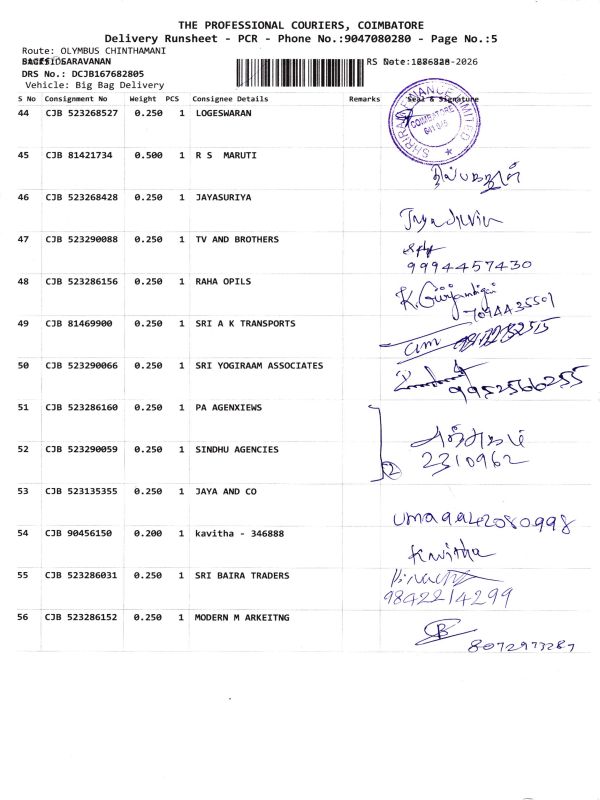 THE PROFESSIONAL COURIERS, COIMBATORE
Delivery Runsheet - PCR - Phone No.:9047080280 - Page No.:5
Route: OLYMBUS CHINTHAMANI
SARAVANAN
DRS No.: DCJB167682805
Vehicle: Big Bag Delivery
S No Consignment No Weight PCS Consignee Details Remarks Seal & Signature
44 CJB 523268527 0.250 1 LOGESWARAN
SHRIRAM FINANCE LIMITED COIMBATORE
45 CJB 81421734 0.500 1 R S MARUTI
46 CJB 523268428 0.250 1 JAYASURIYA
47 CJB 523290088 0.250 1 TV AND BROTHERS
9994457430
48 CJB 523286156 0.250 1 RAHA OPILS
7094435501
49 CJB 81469900 0.250 1 SRI A K TRANSPORTS
50 CJB 523290066 0.250 1 SRI YOGIRAAM ASSOCIATES
9952566255
51 CJB 523286160 0.250 1 PA AGENXIEWS
52 CJB 523290059 0.250 1 SINDHU AGENCIES
2310962
2
53 CJB 523135355 0.250 1 JAYA AND CO
uma 9942080998
54 CJB 90456150 0.200 1 kavitha - 346888
Kavitha
55 CJB 523286031 0.250 1 SRI BAIRA TRADERS
9842214299
56 CJB 523286152 0.250 1 MODERN M ARKEITNG
8072973287